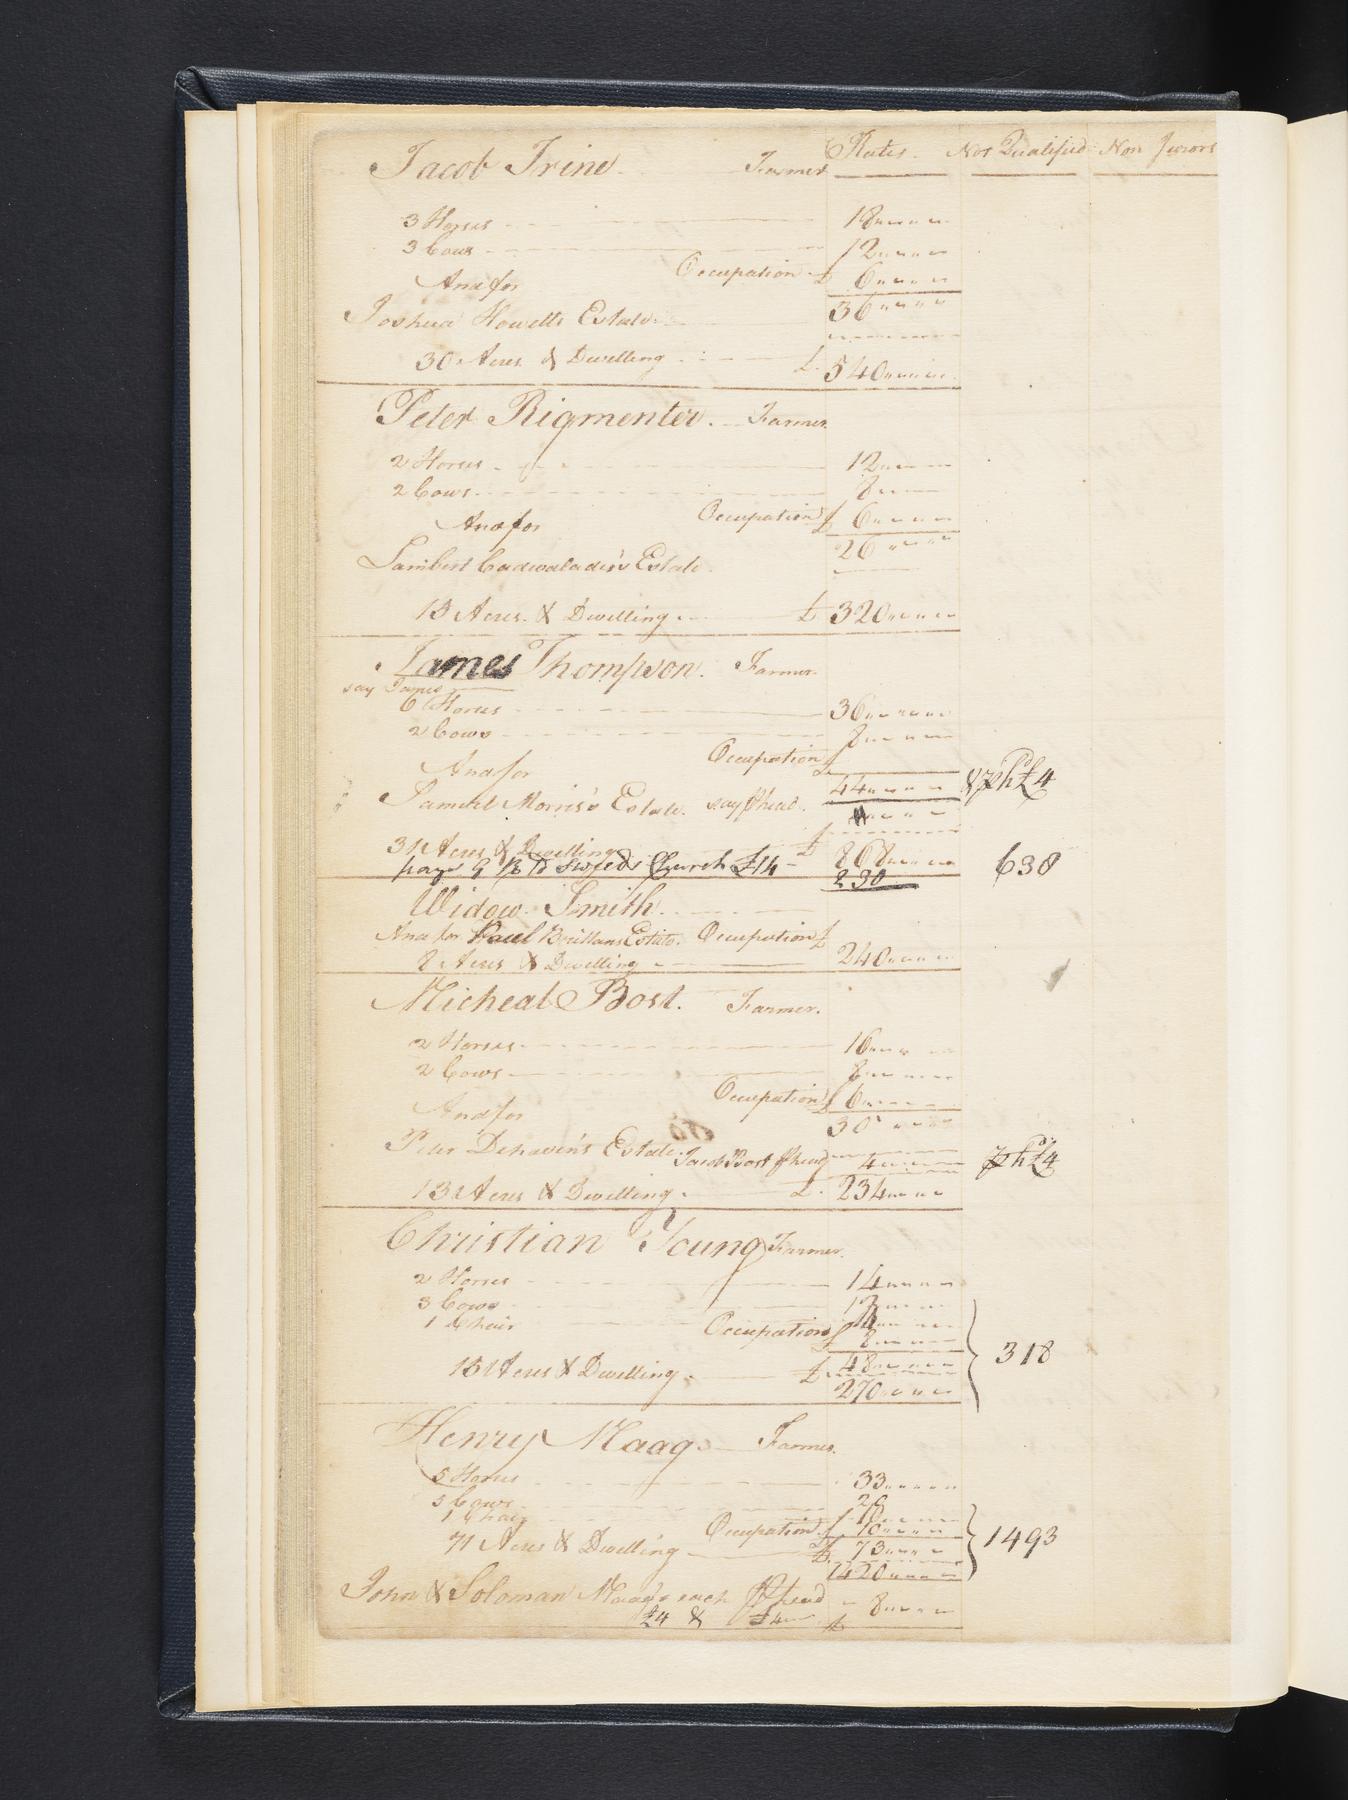 Rates. Not Qualified Non Jurors
Jacob Trine Farmer
3 Horses 18
3 Cows 12
And for Occupation £ 6
36
Joshua Howells Estate
30 Acres & Dwelling £ 540
Peter Rigmenter. Farmer
2 Horses 12
2 Cows 8
And for Occupation £ 6
26
Lambert Cadwalader's Estate
15 Acres & Dwelling £ 320
James Thompson. Farmer
say James
6 Horses 36
2 Cows 8
And for Occupation £
44 & p hd £4
Samuel Morris's Estate. say p head
31 Acres & Dwelling £ 808 638
pays G Rt to Swedes Church £14 230
Widow Smith
And for Paul Brittans Estate. Occupation £
8 Acres & Dwelling 240
Micheal Bost. Farmer.
2 Horses 16
2 Cows 8
And for Occupation £ 6
30
Peter Dehaven's Estate. Jacob Bost p head 4 p hd £4
13 Acres & Dwelling £. 234
Christian Young Farmer.
2 Horses 14
3 Cows
1 Chair Occupation £ 8
48 318
15 Acres & Dwelling £ 270
Henry Maag Farmer.
5 Horses 33
5 Cows 20
1 Chair Occupation £ 10
71 Acres & Dwelling £ 73 1493
1420
John & Soloman Maag's each p head 8
£4 & £4 £